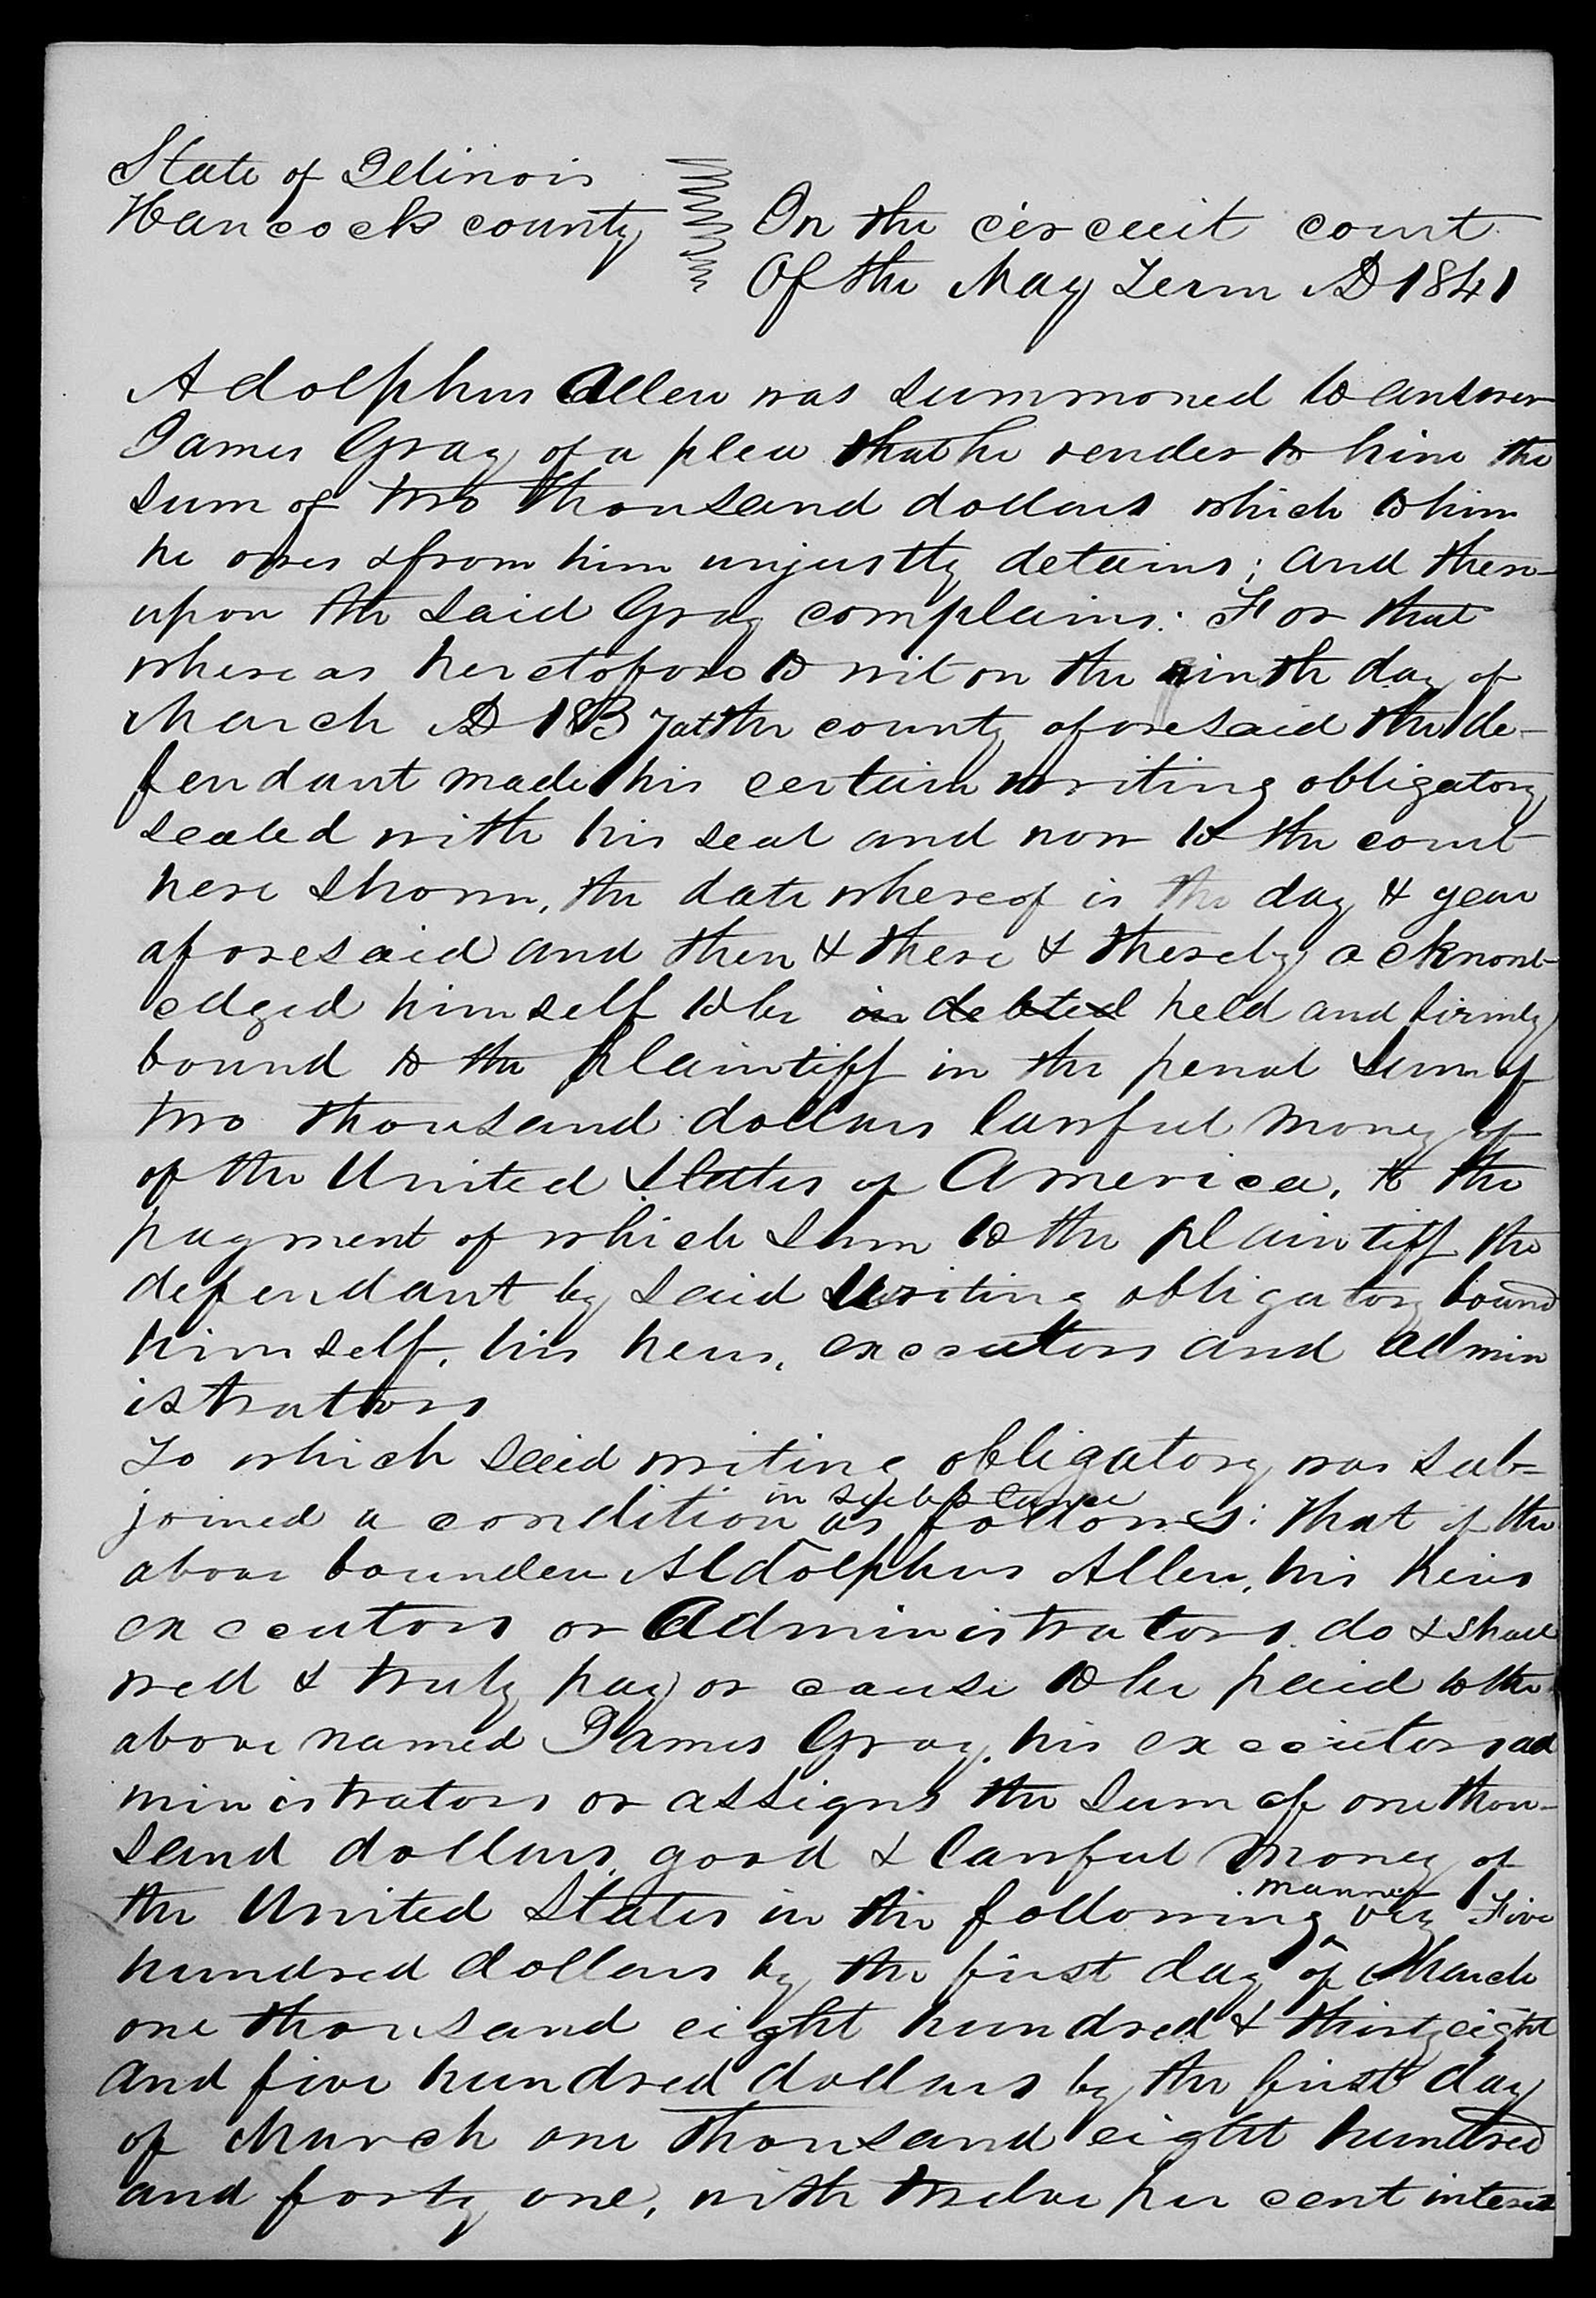 State of Illinois
Hancock county
In the circuit court
Of the May Term AD 1841
Adolphus Allen was summoned to answer
James Gray of a plea that he render to him the
sum of two thousand dollars which to him
he owes & from him unjustly detains; and there-
upon the said Gray complains: For that
whereas heretofore to wit on the ninth day of
March AD 1837 at the county aforesaid the de-
fendant made his certain writing obligatory
sealed with his seal and now to the court
here shown, the date whereof is the day & year
aforesaid and then & there & thereby acknowl-
edged himself to be indebted held and firmly
bound to the plaintiff in the penal sum of
two thousand dollars lawful money of
of the United States of America, to the
payment of which sum to the plaintiff the
defendant by said writing obligatory bound
himself, his heirs, executors and admin
istrators
To which said writing obligatory was sub=
joined a condition in substance as follows: that if the
above bounden Aldolphus Allen, his heirs
executors or administrators do & shall
well & truly pay or cause to be paid to the
above named James Gray, his executors ad
ministrators or assigns the sum of one thou-
sand dollars, good & lawful money of
the United States in the following manner viz Five
hundred dollars by the first day of March
one thousand eight hundred & thirty eight
and five hundred dollars by the first day
of March one thousand eight hundred
and forty one, with twelve per cent interest